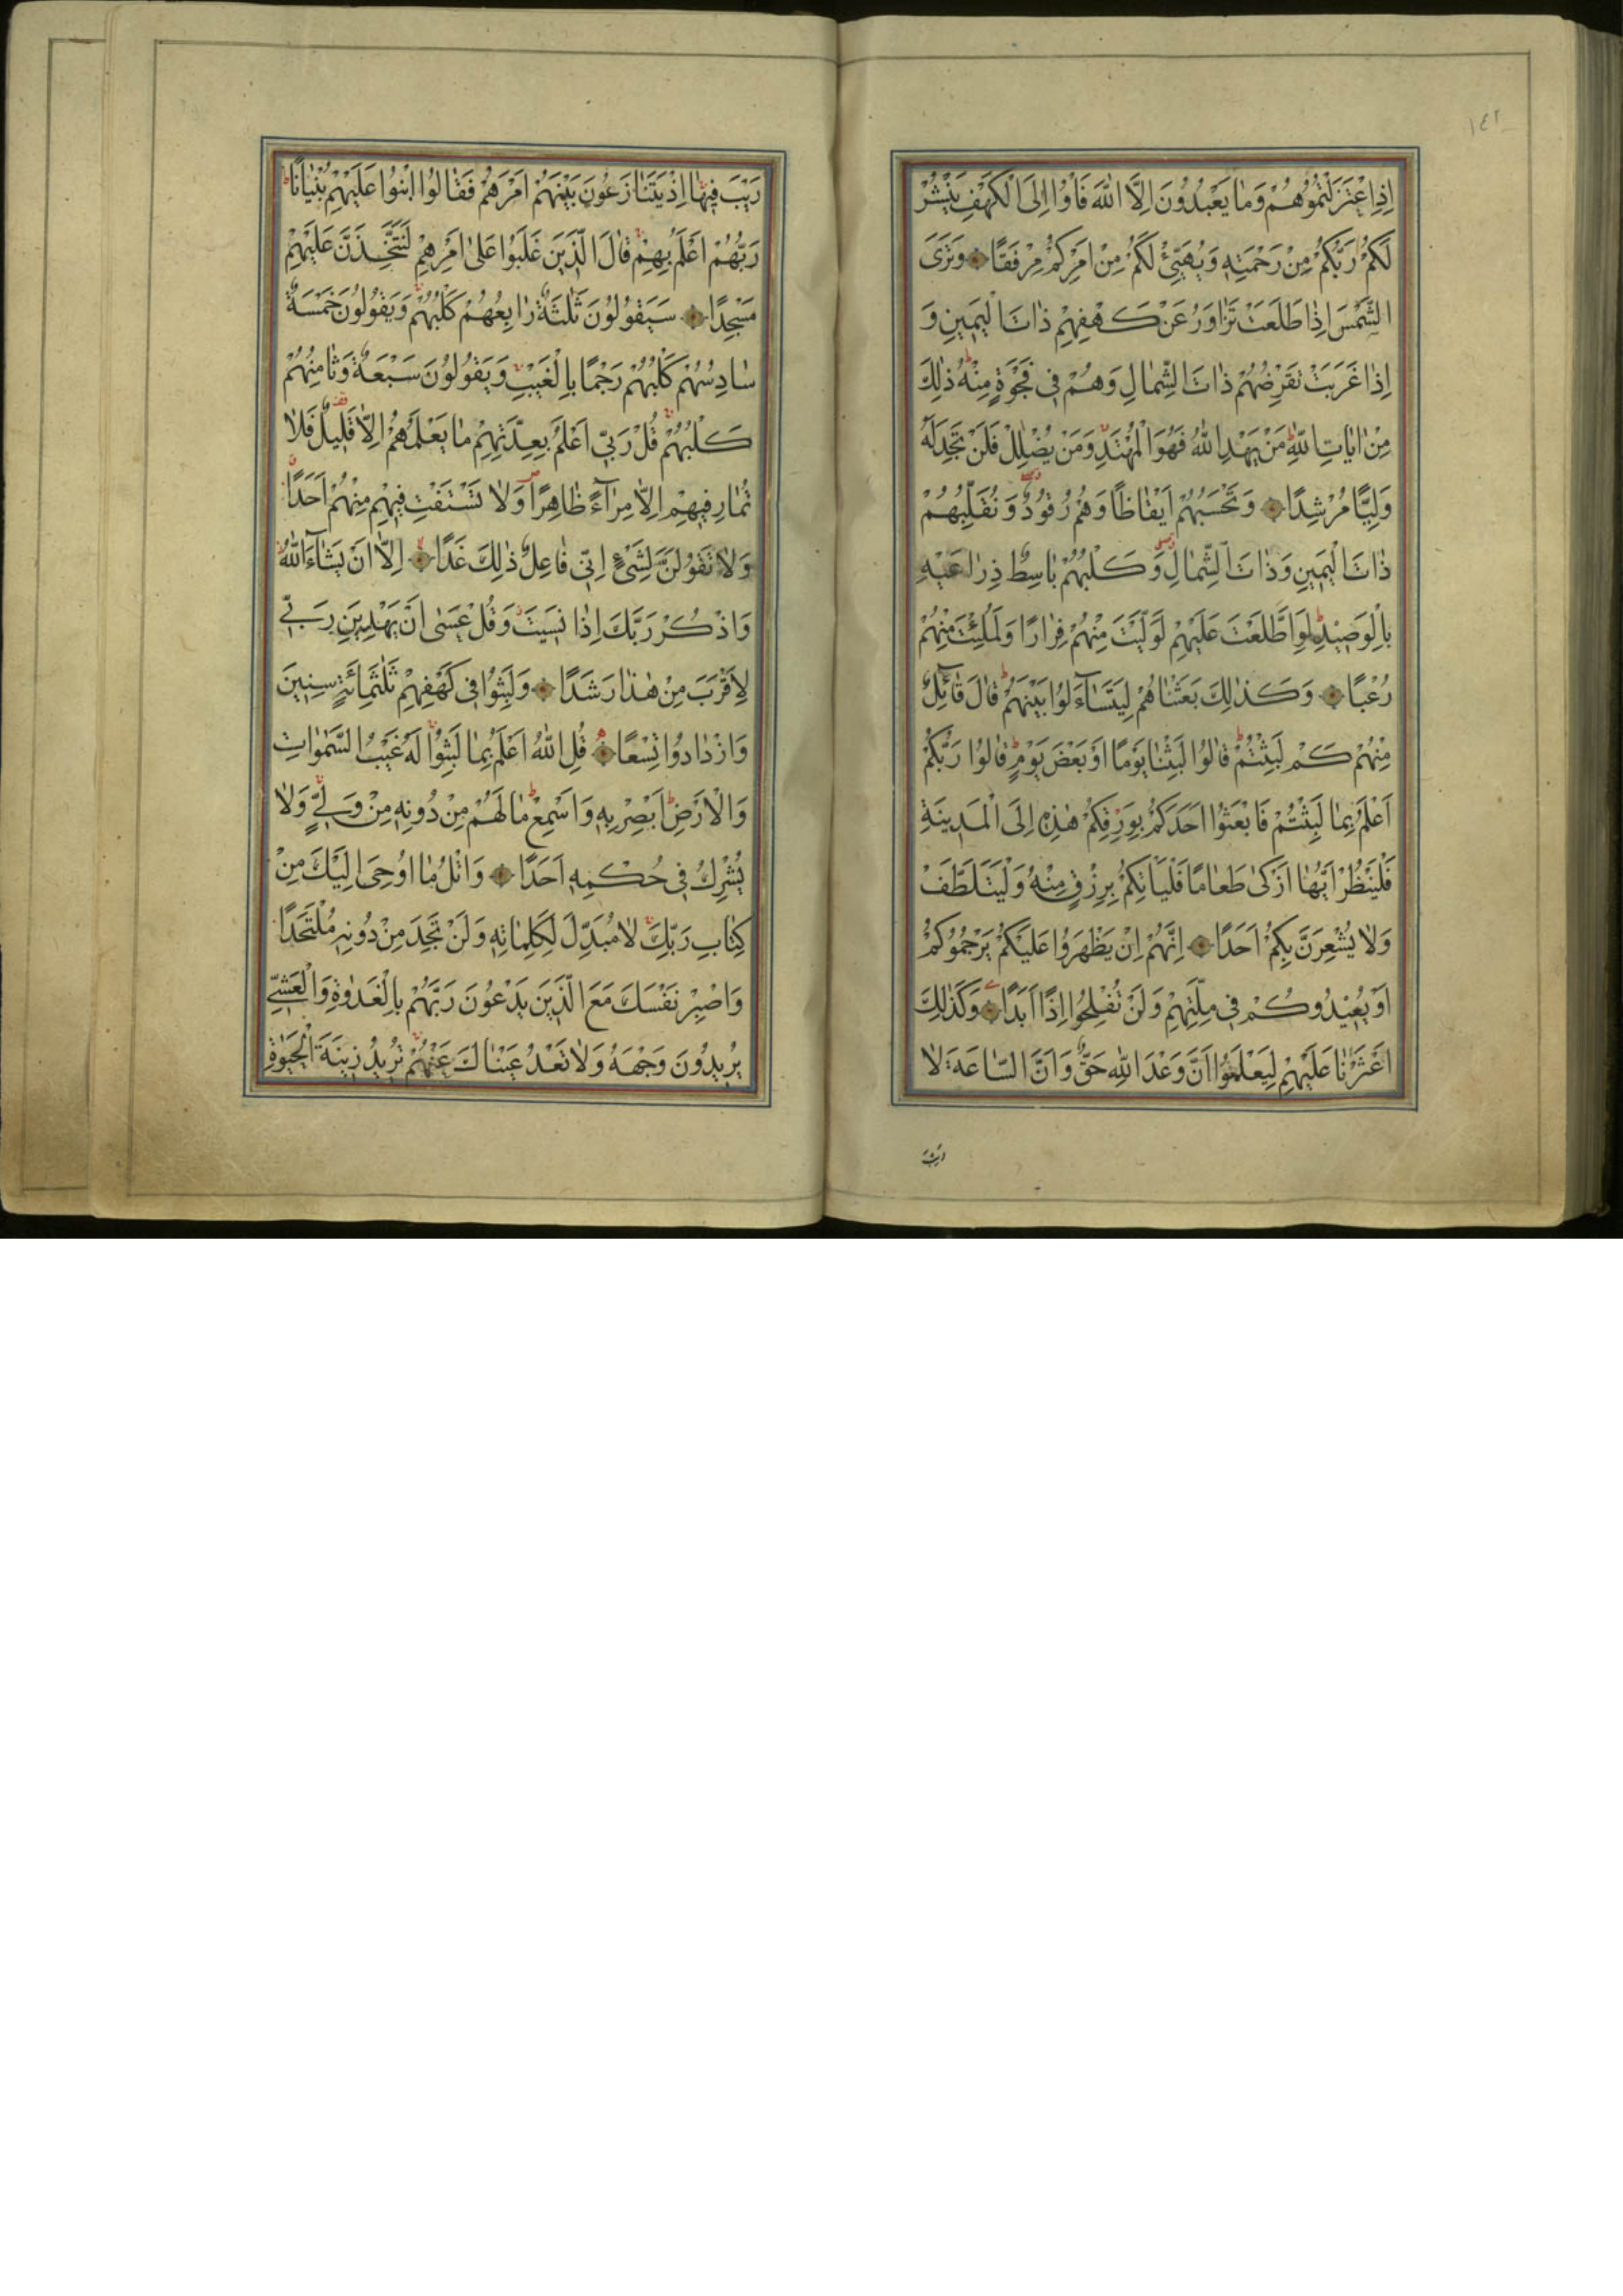 ١٤٢
اِذِ اعْتَزَلْتُمُوهُمْ وَمَا يَعْبُدُونَ اِلَّا اللّٰهَ فَأْوُا اِلَى الْكَهْفِ يَنْشُرْ
لَكُمْ رَبُّكُمْ مِنْ رَحْمَتِهِ وَيُهَيِّئْ لَكُمْ مِنْ اَمْرِكُمْ مِرْفَقًا وَتَرَى
الشَّمْسَ اِذَا طَلَعَتْ تَزَاوَرُ عَنْ كَهْفِهِمْ ذَاتَ الْيَمِينِ وَ
اِذَا غَرَبَتْ تَقْرِضُهُمْ ذَاتَ الشِّمَالِ وَهُمْ فِي فَجْوَةٍ مِنْهُ ذٰلِكَ
مِنْ اٰيَاتِ اللّٰهِ مَنْ يَهْدِ اللّٰهُ فَهُوَ الْمُهْتَدِ وَمَنْ يُضْلِلْ فَلَنْ تَجِدَ لَهُ
وَلِيًّا مُرْشِدًا وَتَحْسَبُهُمْ اَيْقَاظًا وَهُمْ رُقُودٌ وَنُقَلِّبُهُمْ
ذَاتَ الْيَمِينِ وَذَاتَ الشِّمَالِ وَكَلْبُهُمْ بَاسِطٌ ذِرَاعَيْهِ
بِالْوَصِيدِ لَوِ اطَّلَعْتَ عَلَيْهِمْ لَوَلَّيْتَ مِنْهُمْ فِرَارًا وَلَمُلِئْتَ مِنْهُمْ
رُعْبًا وَكَذٰلِكَ بَعَثْنَاهُمْ لِيَتَسَآءَلُوا بَيْنَهُمْ قَالَ قَآئِلٌ
مِنْهُمْ كَمْ لَبِثْتُمْ قَالُوا لَبِثْنَا يَوْمًا اَوْ بَعْضَ يَوْمٍ قَالُوا رَبُّكُمْ
اَعْلَمُ بِمَا لَبِثْتُمْ فَابْعَثُوا اَحَدَكُمْ بِوَرِقِكُمْ هٰذِهِ اِلَى الْمَدِينَةِ
فَلْيَنْظُرْ اَيُّهَا اَزْكٰى طَعَامًا فَلْيَأْتِكُمْ بِرِزْقٍ مِنْهُ وَلْيَتَلَطَّفْ
وَلَا يُشْعِرَنَّ بِكُمْ اَحَدًا اِنَّهُمْ اِنْ يَظْهَرُوا عَلَيْكُمْ يَرْجُمُوكُمْ
اَوْ يُعِيدُوكُمْ فِي مِلَّتِهِمْ وَلَنْ تُفْلِحُوا اِذًا اَبَدًا وَكَذٰلِكَ
اَعْثَرْنَا عَلَيْهِمْ لِيَعْلَمُوا اَنَّ وَعْدَ اللّٰهِ حَقٌّ وَاَنَّ السَّاعَةَ لَا
رَيْبَ فِيهَا اِذْ يَتَنَازَعُونَ بَيْنَهُمْ اَمْرَهُمْ فَقَالُوا ابْنُوا عَلَيْهِمْ بُنْيَانًا
رَبُّهُمْ اَعْلَمُ بِهِمْ قَالَ الَّذِينَ غَلَبُوا عَلٰى اَمْرِهِمْ لَنَتَّخِذَنَّ عَلَيْهِمْ
مَسْجِدًا سَيَقُولُونَ ثَلٰثَةٌ رَابِعُهُمْ كَلْبُهُمْ وَيَقُولُونَ خَمْسَةٌ
سَادِسُهُمْ كَلْبُهُمْ رَجْمًا بِالْغَيْبِ وَيَقُولُونَ سَبْعَةٌ وَثَامِنُهُمْ
كَلْبُهُمْ قُلْ رَبِّي اَعْلَمُ بِعِدَّتِهِمْ مَا يَعْلَمُهُمْ اِلَّا قَلِيلٌ فَلَا
تُمَارِ فِيهِمْ اِلَّا مِرَآءً ظَاهِرًا وَلَا تَسْتَفْتِ فِيهِمْ مِنْهُمْ اَحَدًا
وَلَا تَقُولَنَّ لِشَيْءٍ اِنِّي فَاعِلٌ ذٰلِكَ غَدًا اِلَّا اَنْ يَشَآءَ اللّٰهُ
وَاذْكُرْ رَبَّكَ اِذَا نَسِيتَ وَقُلْ عَسٰى اَنْ يَهْدِيَنِ رَبِّي
لِاَقْرَبَ مِنْ هٰذَا رَشَدًا وَلَبِثُوا فِي كَهْفِهِمْ ثَلٰثَمِائَةٍ سِنِينَ
وَازْدَادُوا تِسْعًا قُلِ اللّٰهُ اَعْلَمُ بِمَا لَبِثُوا لَهُ غَيْبُ السَّمٰوَاتِ
وَالْاَرْضِ اَبْصِرْ بِهِ وَاَسْمِعْ مَا لَهُمْ مِنْ دُونِهِ مِنْ وَلِيٍّ وَلَا
يُشْرِكُ فِي حُكْمِهِ اَحَدًا وَاتْلُ مَا اُوحِيَ اِلَيْكَ مِنْ
كِتَابِ رَبِّكَ لَا مُبَدِّلَ لِكَلِمَاتِهِ وَلَنْ تَجِدَ مِنْ دُونِهِ مُلْتَحَدًا
وَاصْبِرْ نَفْسَكَ مَعَ الَّذِينَ يَدْعُونَ رَبَّهُمْ بِالْغَدٰوةِ وَالْعَشِيِّ
يُرِيدُونَ وَجْهَهُ وَلَا تَعْدُ عَيْنَاكَ عَنْهُمْ تُرِيدُ زِينَةَ الْحَيٰوةِ